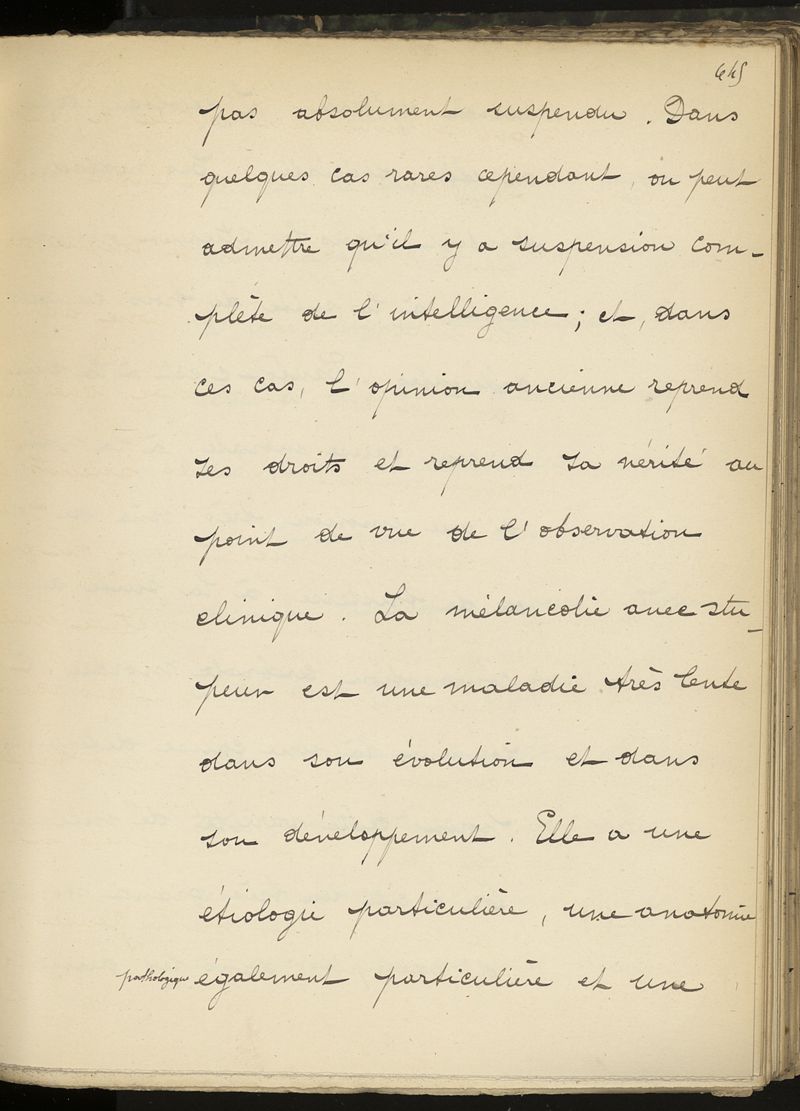 645
pas absolument suspendu. Dans
quelques cas rares cependant, on peut
admettre qu'il y a suspension com-
plète de l'intelligence; et, dans
ces cas, l'opinion ancienne reprend
ses droits et reprend sa vérité au
point de vue de l'observation
clinique. La mélancolie avec stu-
peur est une maladie très lente
dans son évolution et dans
son développement. Elle a une
étiologie particulière, une anatomie
pathologique également particulière et une